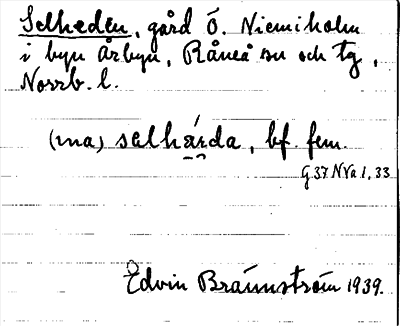 Selheden, gård Ö. Niemiholm
i byn Årbyn, Råneå sn och tg,
Norrb. l.
(ma) selhárda, bf. fem.
G 37 NVa 1, 33
Edvin Brännström 1939.